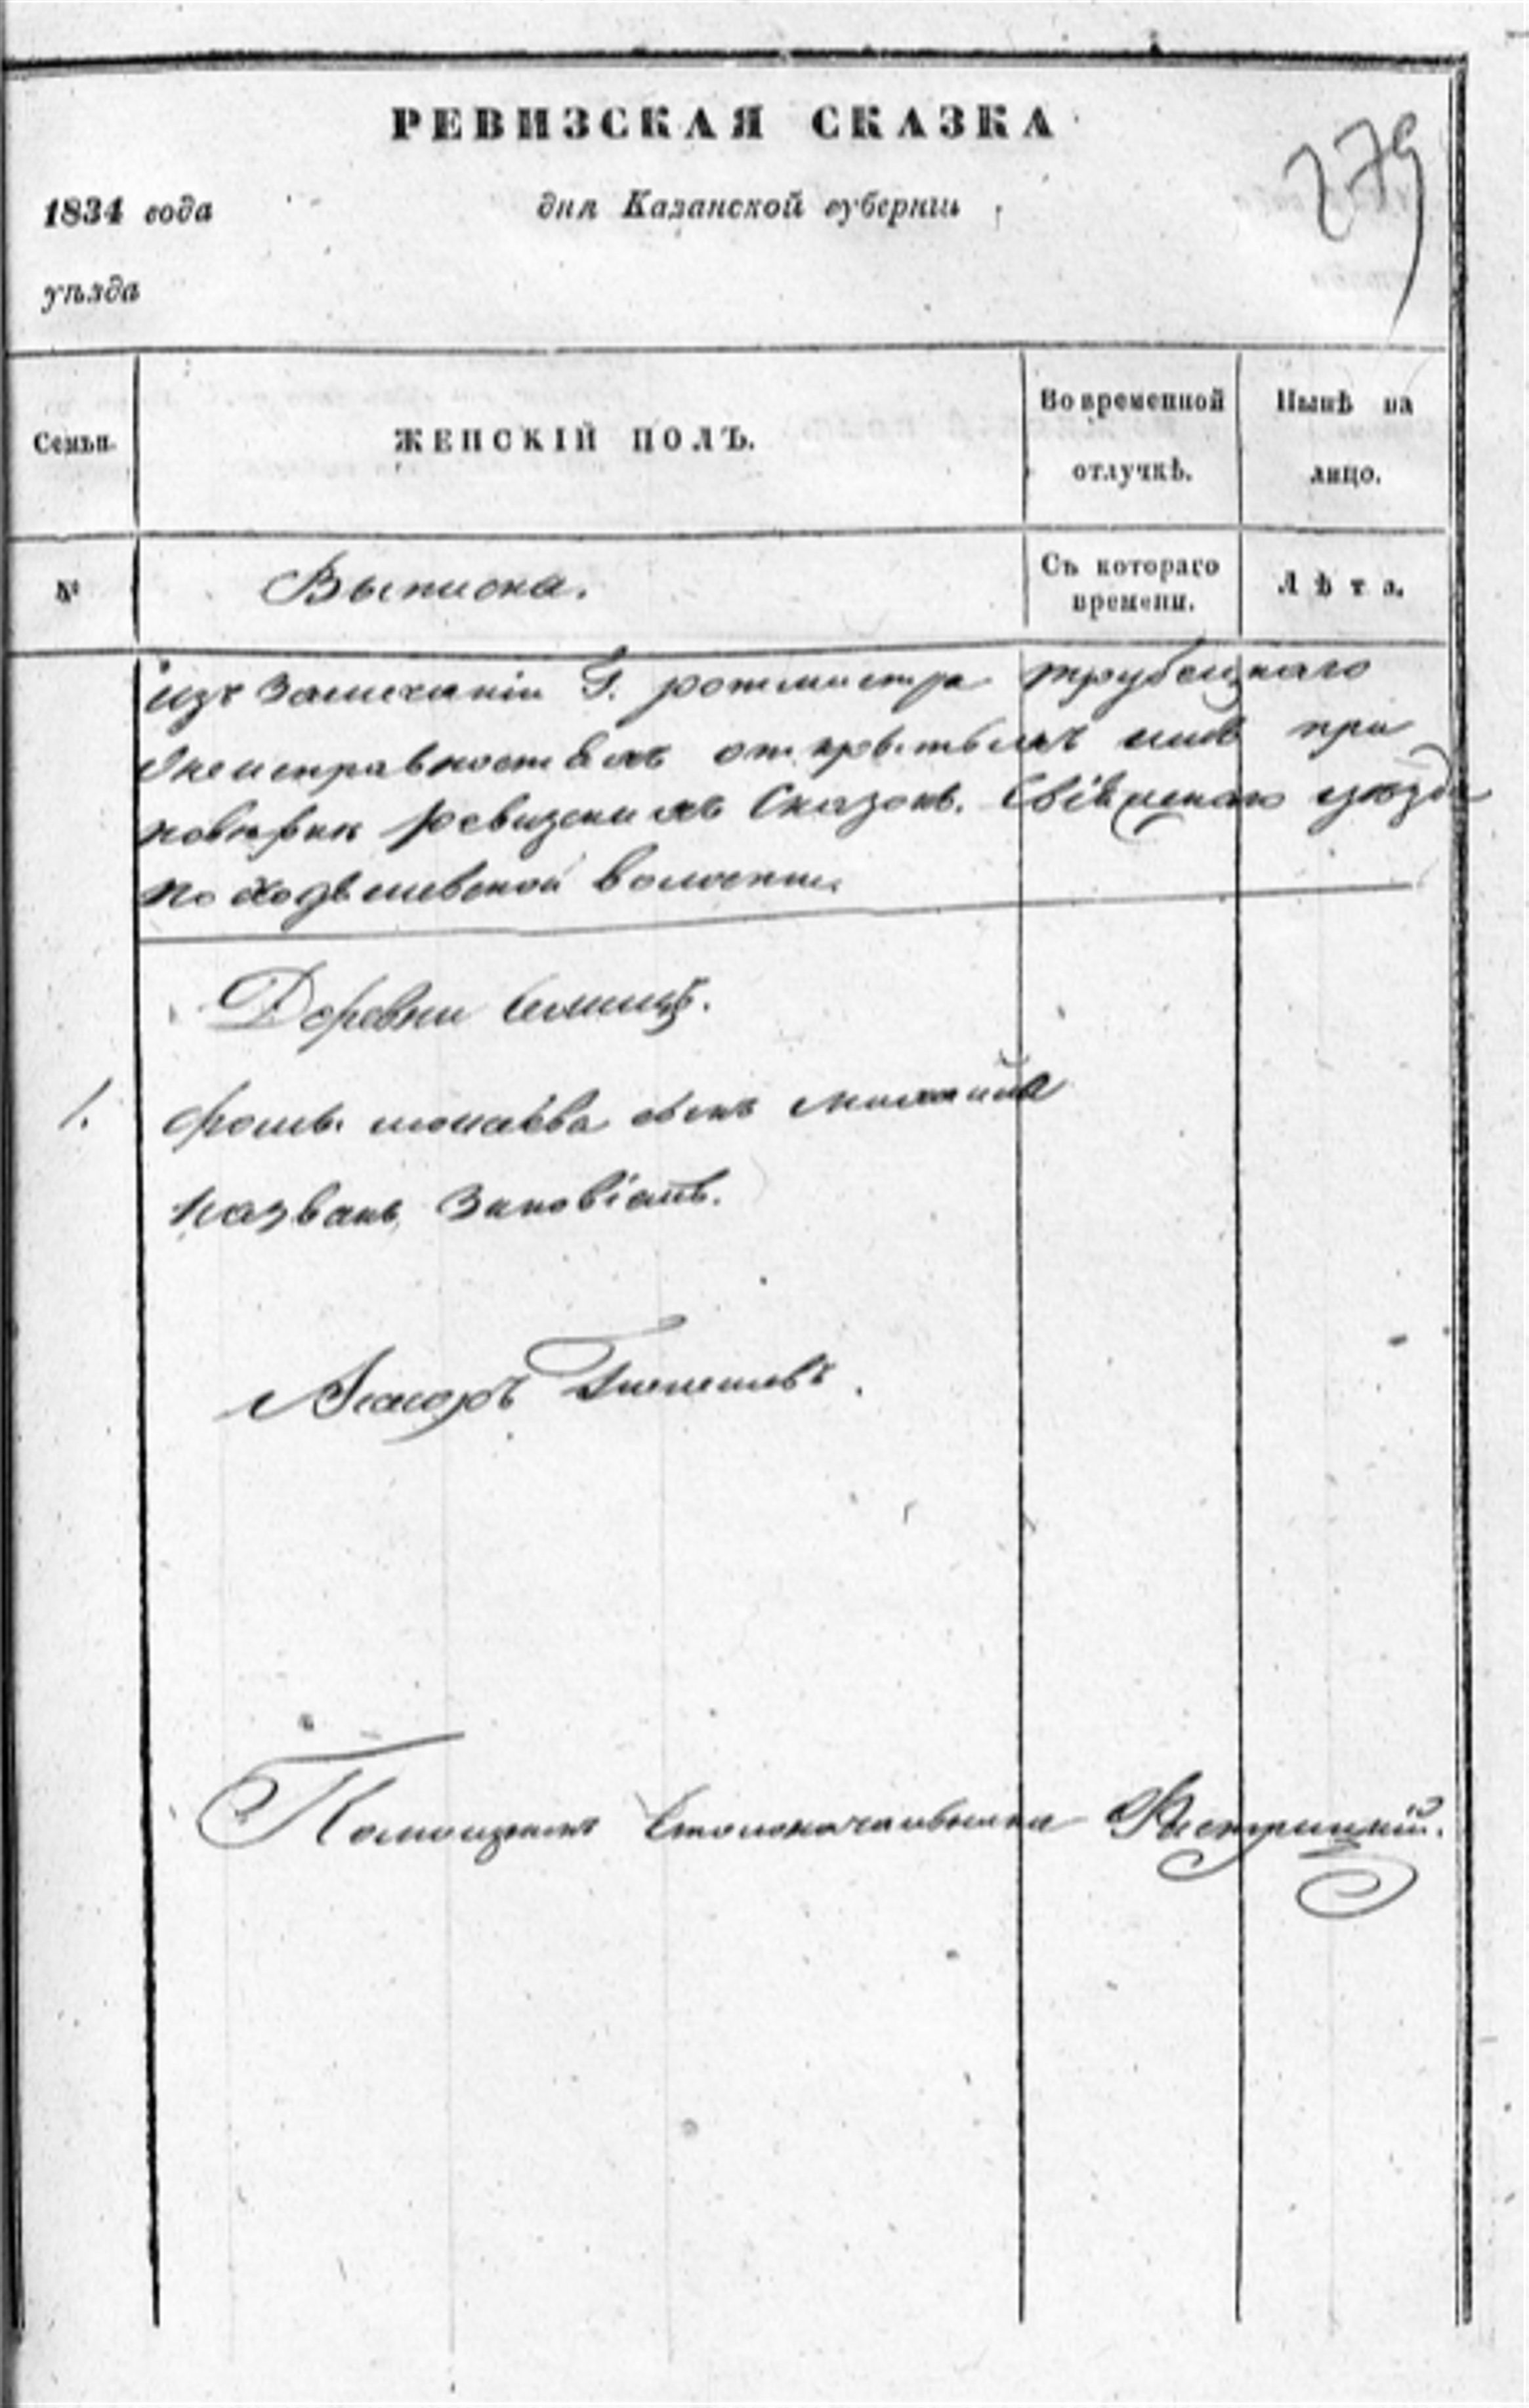 РЕВИЗСКАЯ СКАЗКА
279
1834 года дня Казанской губерніи
уѣзда
Семьи. ЖЕНСКІЙ ПОЛЪ. Во временной отлучкѣ. Нынѣ на лицо.
№ Выписка. Съ котораго времени. Лѣта.
изъ Замечаніи Г. ротмистра трубецкаго
о неисправностяхъ открытыхъ имъ при
поверки ревизскихъ Сказокъ. Свіяжскаго уезда
по волости.
Деревни
1. сынъ михайла
названъ
Асесоръ
Помощникъ Столоначальника